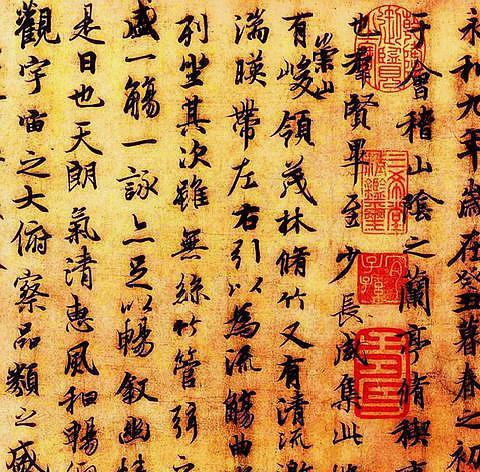 永和九年歲在癸丑暮春之初
于會稽山陰之蘭亭脩稧
也羣賢畢至少長咸集此
有崇山峻領茂林脩竹又有清流激
湍暎帶左右引以為流觴曲
列坐其次雖無絲竹管弦之
盛一觴一詠亦足以暢叙幽情
是日也天朗氣清惠風和暢
觀宇宙之大俯察品類之盛
三希堂精鑑璽
宜子孫